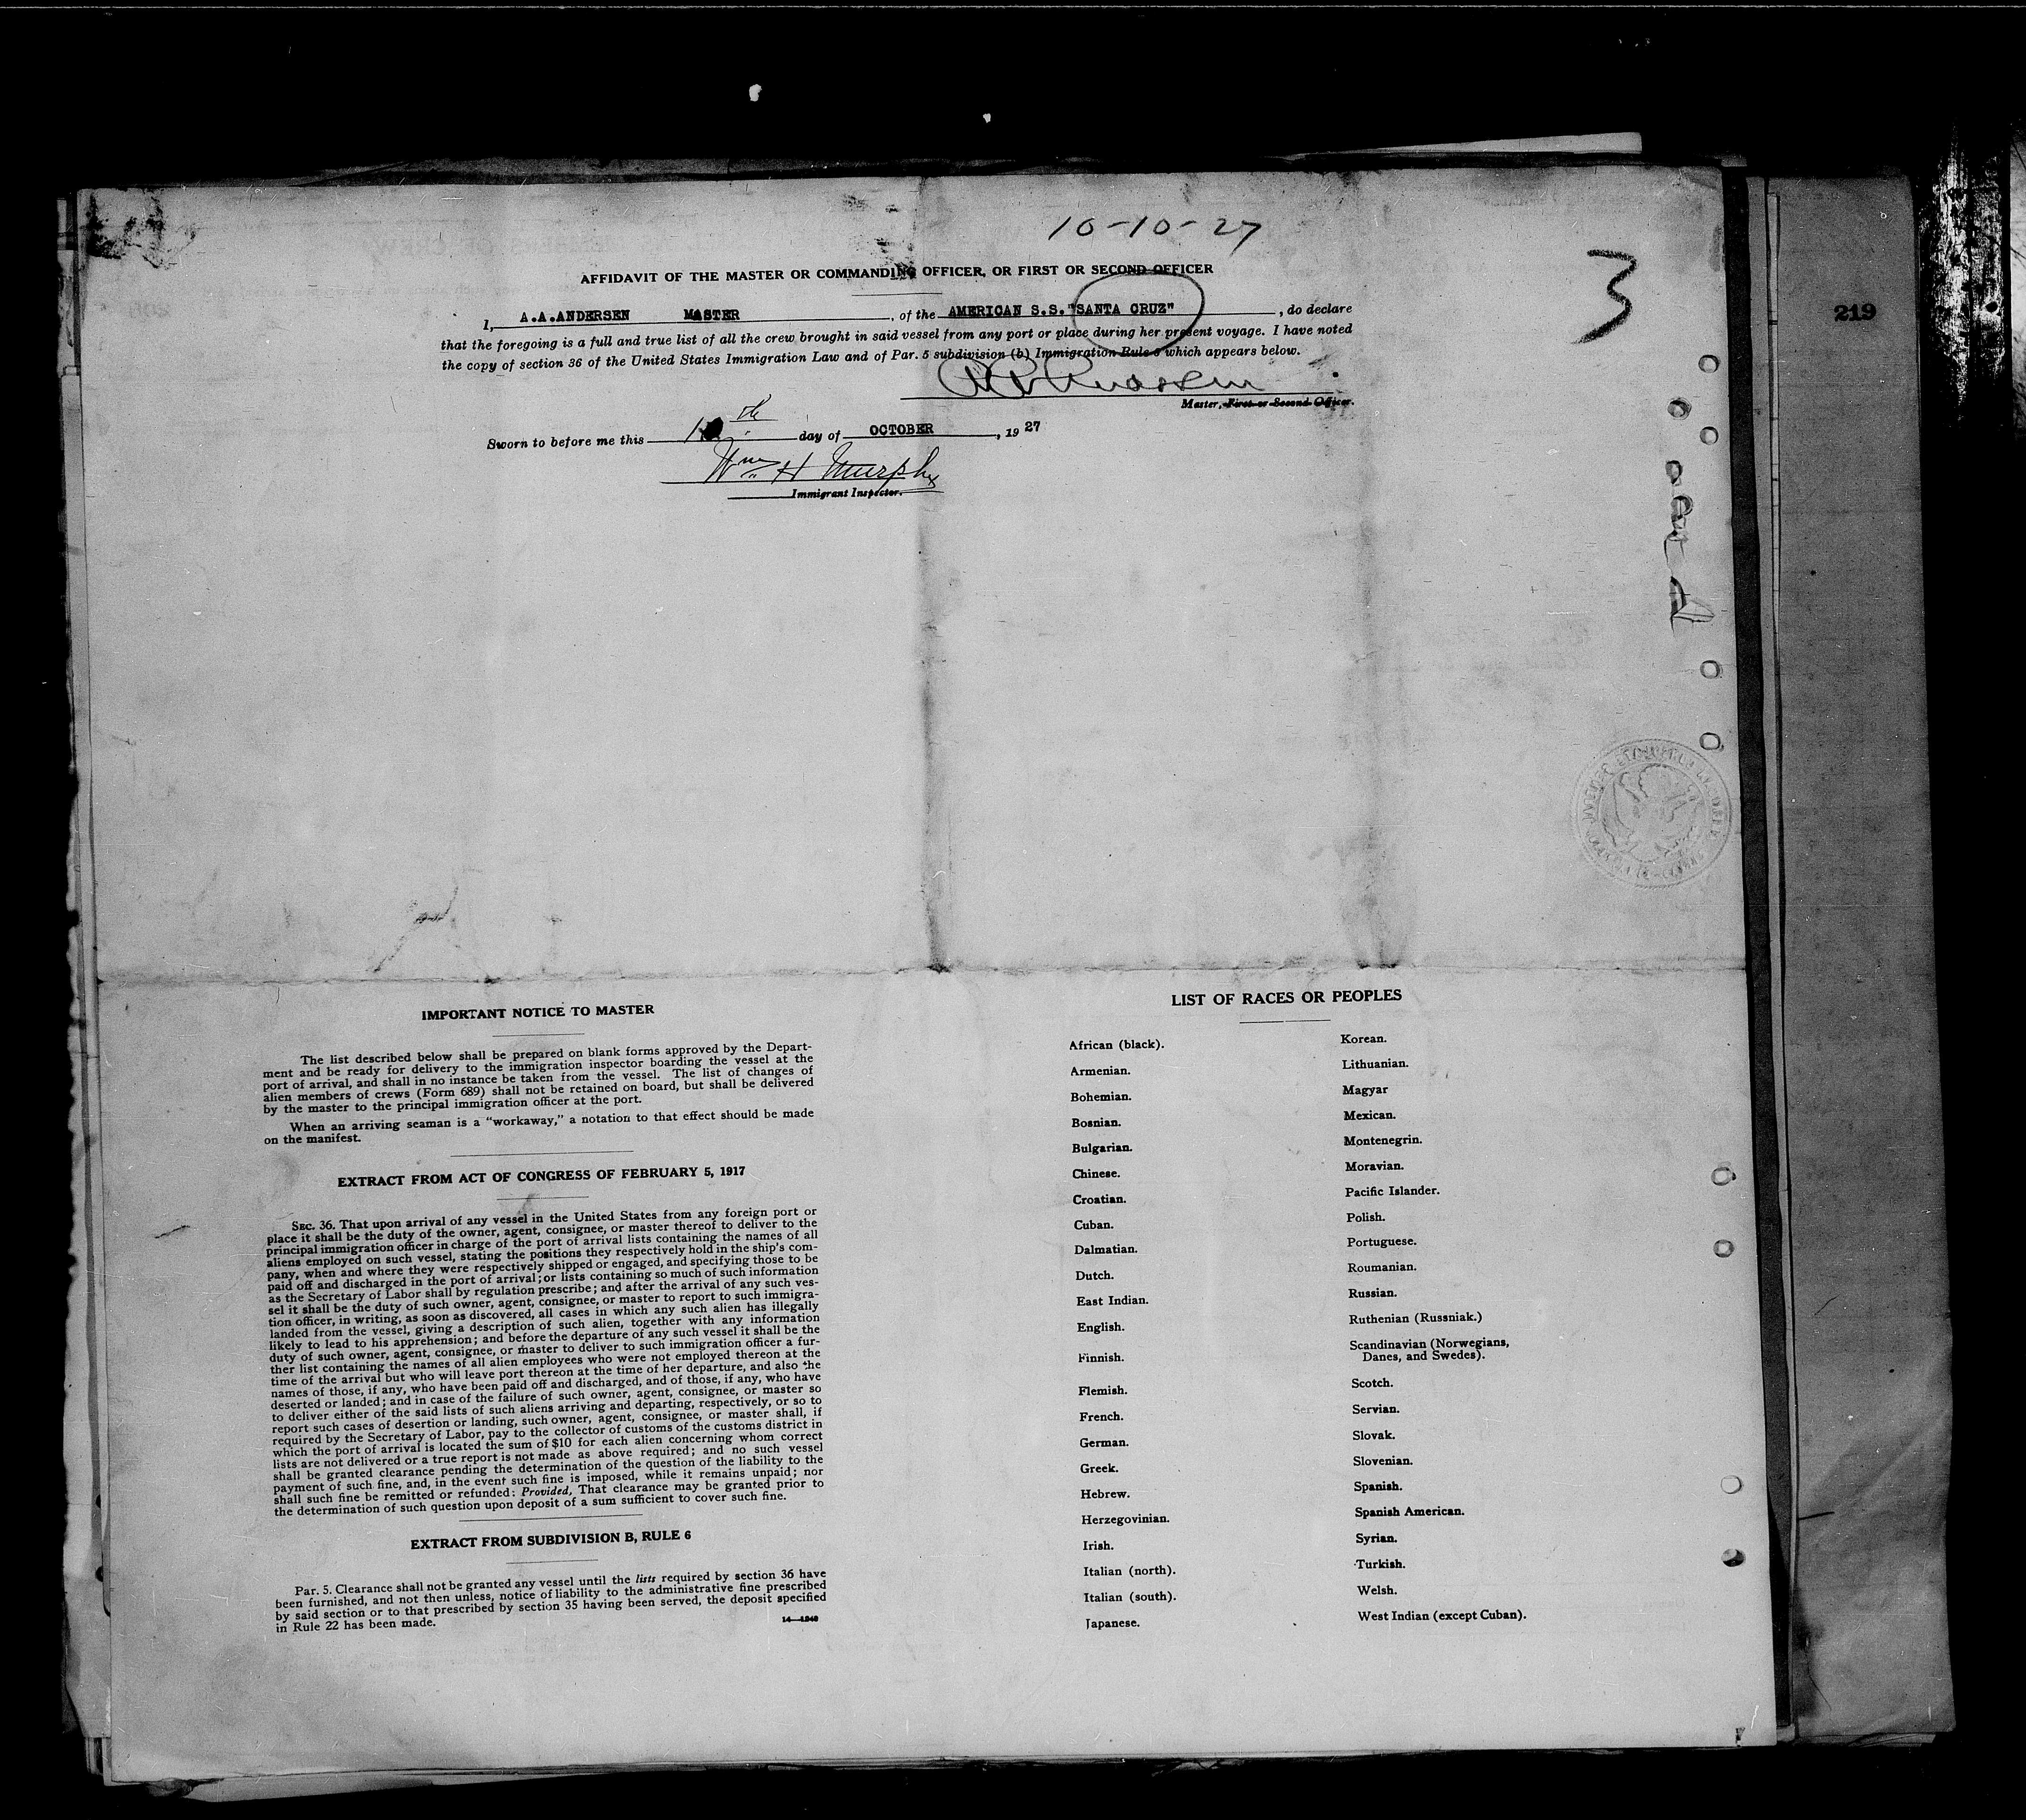 10-10-27
3
219
AFFIDAVIT OF THE MASTER OR COMMANDING OFFICER, OR FIRST OR SECOND OFFICER
I, A.A.ANDERSEN MASTER, of the AMERICAN S.S."SANTA CRUZ", do declare
that the foregoing is a full and true list of all the crew brought in said vessel from any port or place during her present voyage. I have noted
the copy of section 36 of the United States Immigration Law and of Par. 5 subdivision (b) Immigration Rule 6 which appears below.
Master, First or Second Officer.
Sworn to before me this 10th day of OCTOBER, 1927
Wm H Murphy
Immigrant Inspector.
IMPORTANT NOTICE TO MASTER
The list described below shall be prepared on blank forms approved by the Depart-
ment and be ready for delivery to the immigration inspector boarding the vessel at the
port of arrival, and shall in no instance be taken from the vessel. The list of changes of
alien members of crews (Form 689) shall not be retained on board, but shall be delivered
by the master to the principal immigration officer at the port.
When an arriving seaman is a "workaway," a notation to that effect should be made
on the manifest.
EXTRACT FROM ACT OF CONGRESS OF FEBRUARY 5, 1917
SEC. 36. That upon arrival of any vessel in the United States from any foreign port or
place it shall be the duty of the owner, agent, consignee, or master thereof to deliver to the
principal immigration officer in charge of the port of arrival lists containing the names of all
aliens employed on such vessel, stating the positions they respectively hold in the ship's com-
pany, when and where they were respectively shipped or engaged, and specifying those to be
paid off and discharged in the port of arrival; or lists containing so much of such information
as the Secretary of Labor shall by regulation prescribe; and after the arrival of any such ves-
sel it shall be the duty of such owner, agent, consignee, or master to report to such immigra-
tion officer, in writing, as soon as discovered, all cases in which any such alien has illegally
landed from the vessel, giving a description of such alien, together with any information
likely to lead to his apprehension; and before the departure of any such vessel it shall be the
duty of such owner, agent, consignee, or master to deliver to such immigration officer a fur-
ther list containing the names of all alien employees who were not employed thereon at the
time of the arrival but who will leave port thereon at the time of her departure, and also the
names of those, if any, who have been paid off and discharged, and of those, if any, who have
deserted or landed; and in case of the failure of such owner, agent, consignee, or master so
to deliver either of the said lists of such aliens arriving and departing, respectively, or so to
report such cases of desertion or landing, such owner, agent, consignee, or master shall, if
required by the Secretary of Labor, pay to the collector of customs of the customs district in
which the port of arrival is located the sum of $10 for each alien concerning whom correct
lists are not delivered or a true report is not made as above required; and no such vessel
shall be granted clearance pending the determination of the question of the liability to the
payment of such fine, and, in the event such fine is imposed, while it remains unpaid; nor
shall such fine be remitted or refunded: Provided, That clearance may be granted prior to
the determination of such question upon deposit of a sum sufficient to cover such fine.
EXTRACT FROM SUBDIVISION B, RULE 6
Par. 5. Clearance shall not be granted any vessel until the lists required by section 36 have
been furnished, and not then unless, notice of liability to the administrative fine prescribed
by said section or to that prescribed by section 35 having been served, the deposit specified
in Rule 22 has been made.
14—1240
LIST OF RACES OR PEOPLES
African (black).
Armenian.
Bohemian.
Bosnian.
Bulgarian.
Chinese.
Croatian.
Cuban.
Dalmatian.
Dutch.
East Indian.
English.
Finnish.
Flemish.
French.
German.
Greek.
Hebrew.
Herzegovinian.
Irish.
Italian (north).
Italian (south).
Japanese.
Korean.
Lithuanian.
Magyar
Mexican.
Montenegrin.
Moravian.
Pacific Islander.
Polish.
Portuguese.
Roumanian.
Russian.
Ruthenian (Russniak.)
Scandinavian (Norwegians,
Danes, and Swedes).
Scotch.
Servian.
Slovak.
Slovenian.
Spanish.
Spanish American.
Syrian.
Turkish.
Welsh.
West Indian (except Cuban).